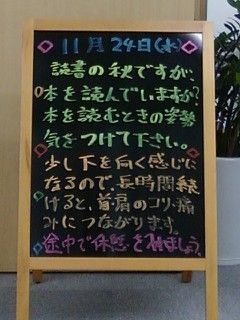 11月24日(水)
読書の秋ですが、
本を読んでいますか?
本を読むときの姿勢
気をつけて下さい。
少し下を向く感じに
なるので、長時間続
けると、首肩のコリ・痛
みにつながります。
途中で休憩を入れましょう。